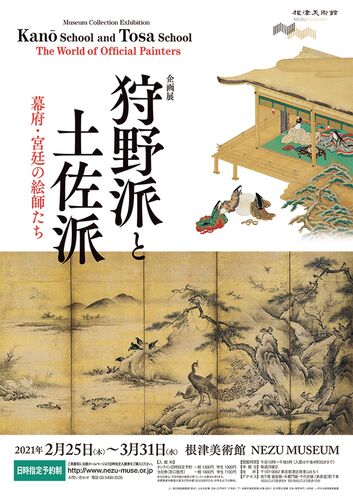 Museum Collection Exhibition
Kanō School and Tosa School
The World of Official Painters
根津美術館
NEZU MUSEUM
企画展
狩野派と
土佐派
幕府・宮廷の絵師たち
2021年 2月25日(木)〜3月31日(水) 根津美術館 NEZU MUSEUM
日時指定予約制
http://www.nezu-muse.or.jp
お問い合わせ 電話 03-3400-2536